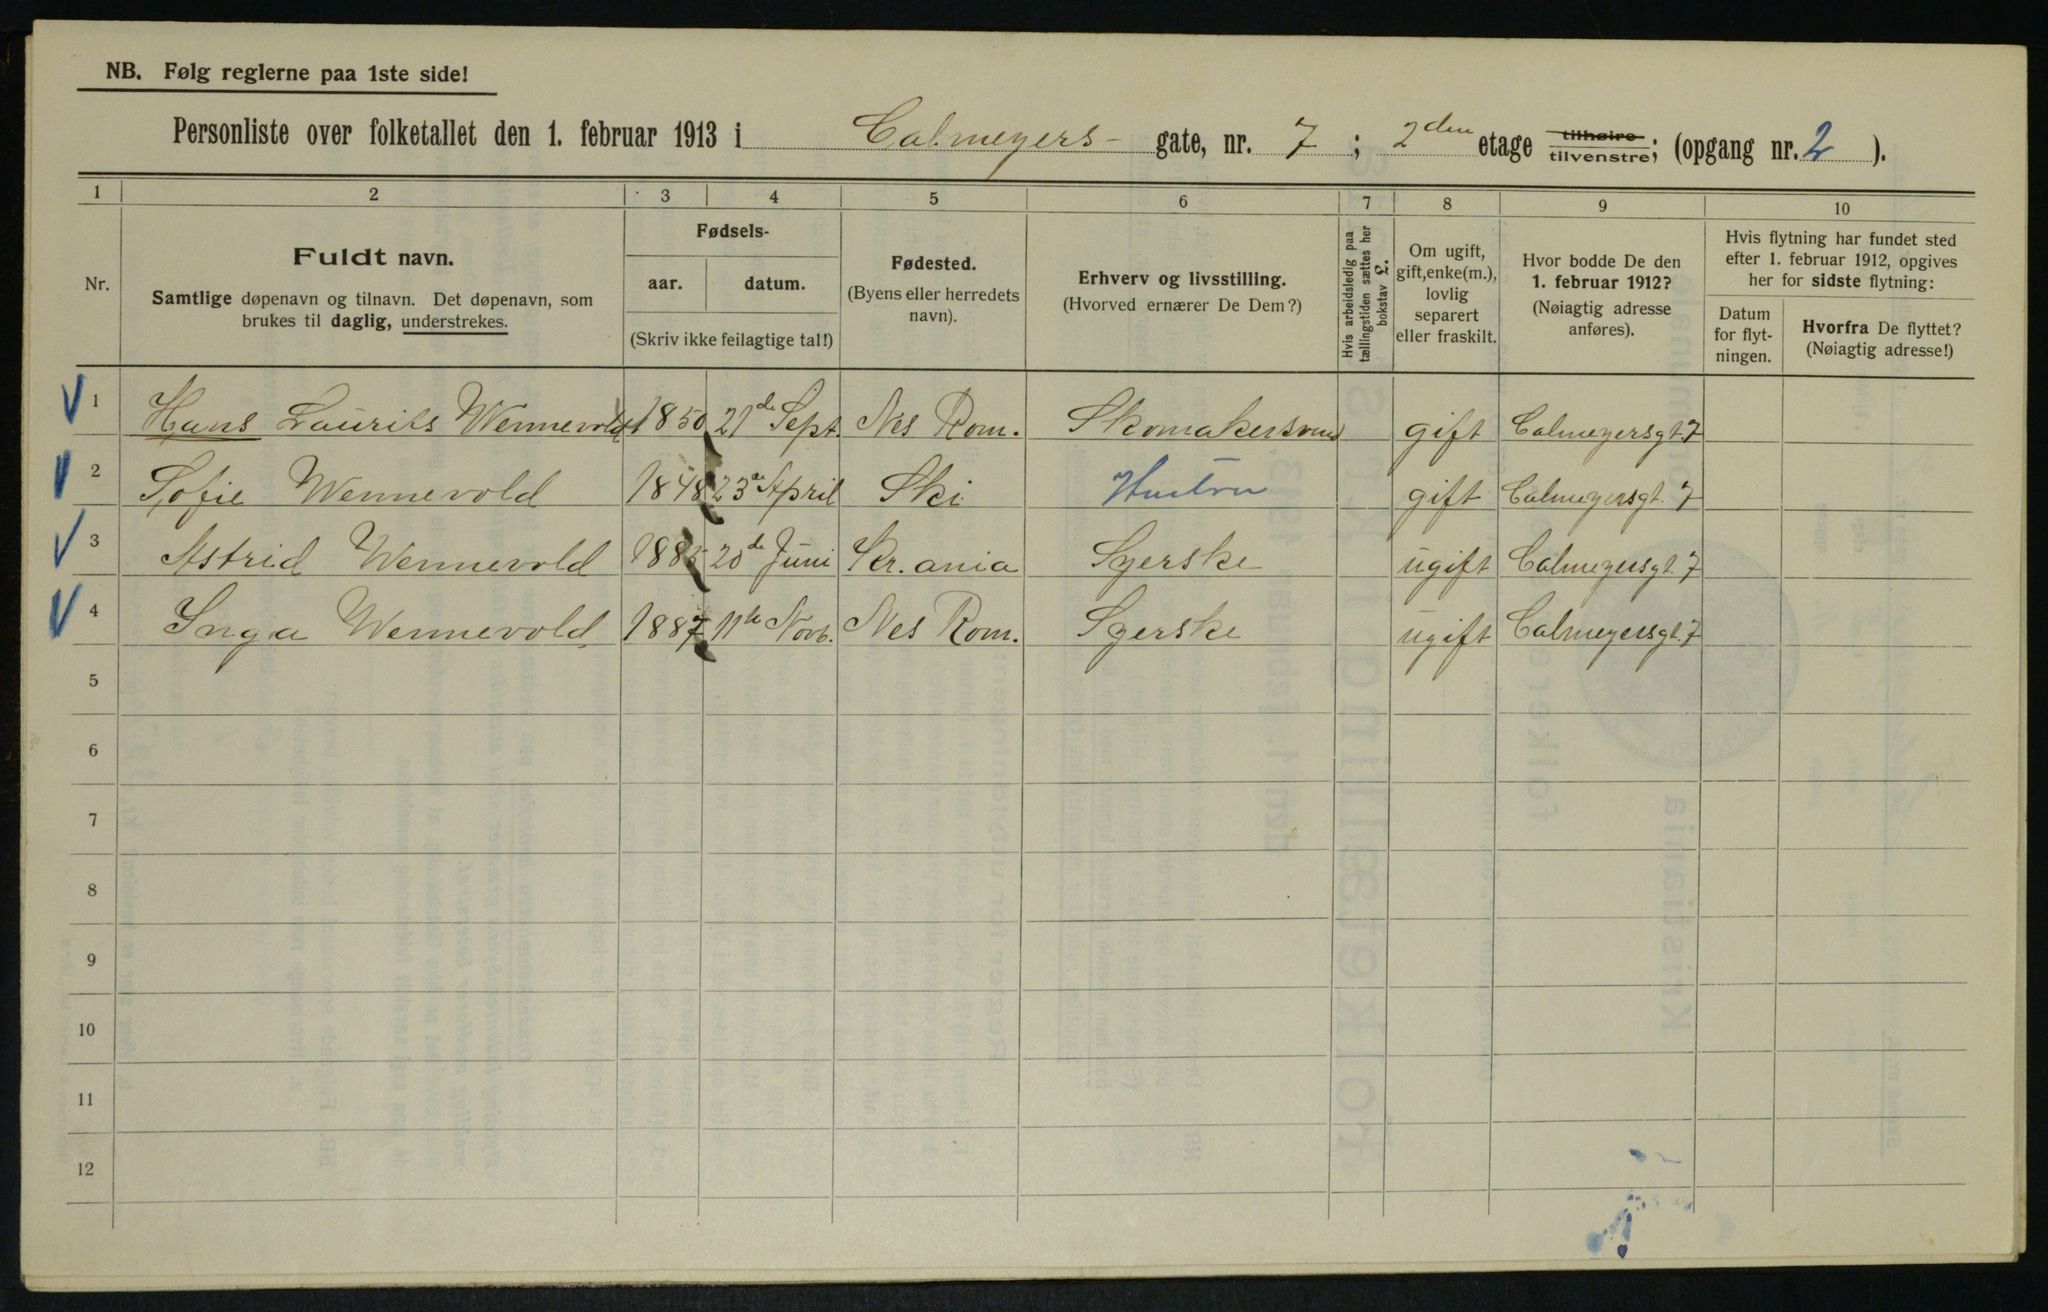 NB. Følg reglerne paa 1ste side!
Personliste over folketallet den 1. februar 1913 i Calmeyers- gate, nr. 7 ; 2den etage tilhøire tilvenstre; (opgang nr. 2 ).
1 2 3 4 5 6 7 8 9 10
Nr.
Fuldt navn.
Samtlige døpenavn og tilnavn. Det døpenavn, som
brukes til daglig, understrekes.
Fødsels-
aar. datum.
(Skriv ikke feilagtige tal!)
Fødested.
(Byens eller herredets
navn).
Erhverv og livsstilling.
(Hvorved ernærer De Dem?)
Hvis arbeidsledig paa
tællingstiden sættes her
bokstav L.
Om ugift,
gift, enke(m.),
lovlig
separert
eller fraskilt.
Hvor bodde De den
1. februar 1912?
(Nøiagtig adresse
anføres).
Hvis flytning har fundet sted
efter 1. februar 1912, opgives
her for sidste flytning:
Datum
for flyt-
ningen.
Hvorfra De flyttet?
(Nøiagtig adresse!)
1 Hans Laurits Wennevold 1850 21de Sept. Nes Rom. Skomakersvend gift Calmeyersgt. 7
2 Sofie Wennevold 1848 23de April Ski Hustru gift Calmeyersgt. 7
3 Astrid Wennevold 1885 20de Juni Kr.ania Syerske ugift Calmeyersgt. 7
4 Inga Wennevold 1887 11te Novb. Nes Rom. Syerske ugift Calmeyersgt. 7
5
6
7
8
9
10
11
12